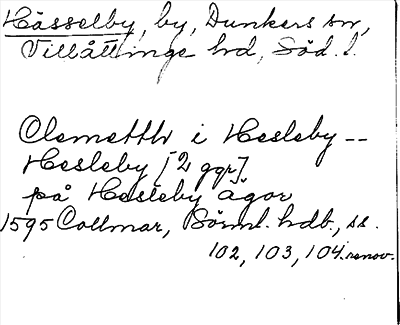 Hässelby, by, Dunkers sn,
Villåttinge hd, Söd. l.
Clemetth i Hesleby --
Hesleby [2 ggr]
på Hesleby ägor
1595 Collmar, Sörml. hdb., ss.
102, 103, 104. renov.